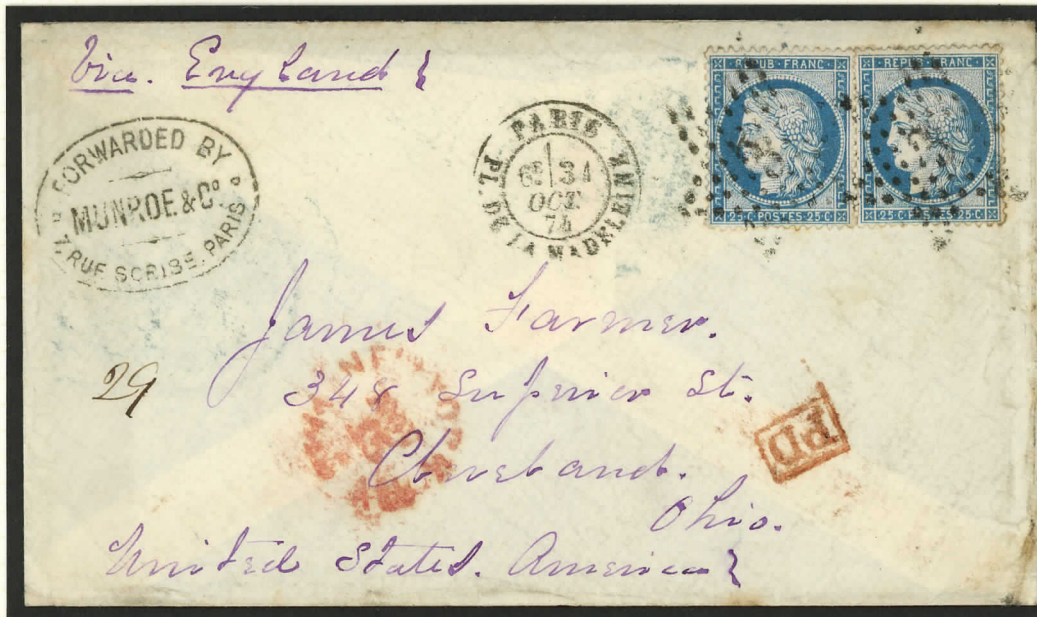 Via. England
FORWARDED BY
MUNROE & Co.
7, RUE SCRIBE, PARIS
PARIS
31
OCT
74
PL. DE LA MADELEINE
REPUB·FRANC·
25·C·POSTES·25·C·
REPUB·FRANC·
25·C·POSTES·25·C·
James Farmer.
29
348 Superior St.
PD
Cleveland.
Ohio.
United States. America